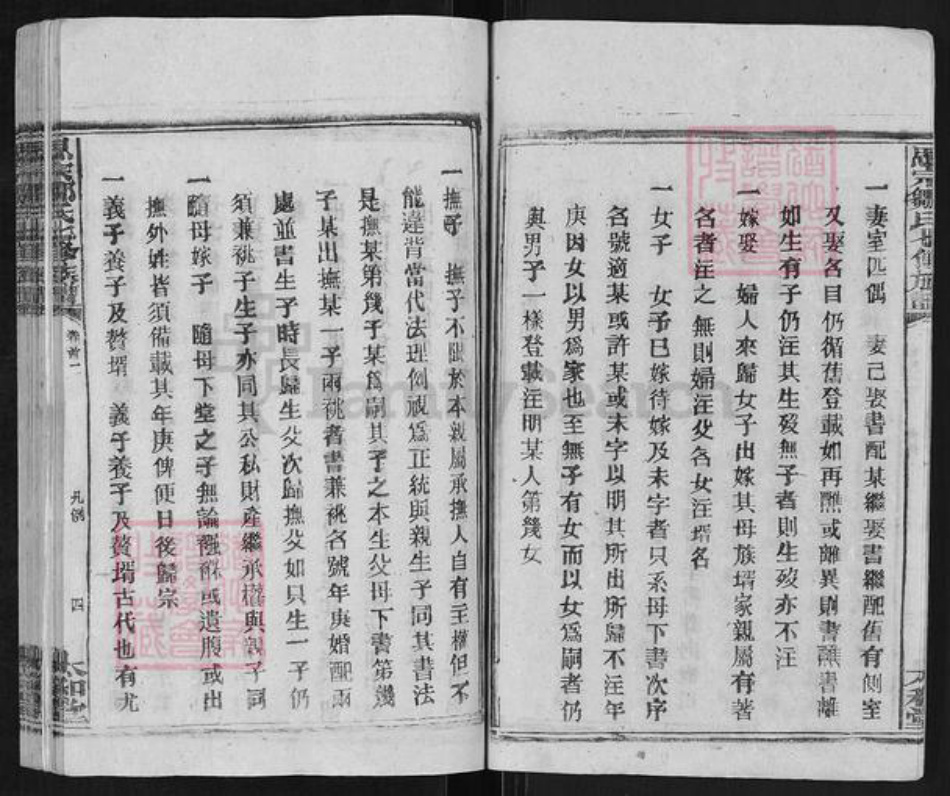 一妻室匹偶　妻己娶書配某繼娶書繼配舊有側室
又娶各目仍循舊登載如再醮或離異則書醮書離
如生有子仍注其生歿無子者則生歿亦不注
一嫁娶　婦人來歸女子出嫁其母族壻家親屬有著
名者注之無則婦注父名女注壻名
一女子　女子已嫁待嫁及未字者只系母下書次序
名號適某或許某或未字以明其所出所歸不注年
庚因女以男爲家也至無子有女而以女爲嗣者仍
與男子一樣登載注明某人第幾女
一撫子　撫子不限於本親屬承撫人自有主權但不
能違背當代法理例視爲正統與親生子同其書法
是撫某第幾子某爲嗣其子之本生父母下書第幾
子某出撫某一子兩祧者書兼祧名號年庚婚配兩
處並書生子時長歸生父次歸撫父如只生一子仍
須兼祧子生子亦同其公私財產繼承權與親子同
一隨母嫁子　隨母下堂之子無論襁褓或遺腹或出
撫外姓皆須備載其年庚俾便日後歸宗
一義子養子及贅壻　義子養子及贅壻古代也有尤
卷首一
凡例
四
太和堂